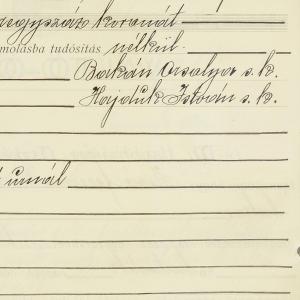 négyszáz koronát
molásba tudósítás nélkül
Bakán Orsolya s. k.
Hajduk István s. k.
unnál